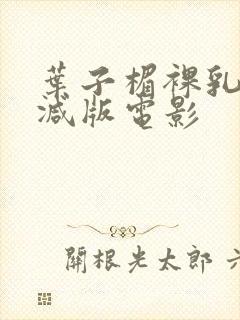 葉子楣裸乳
減版電影
關根光太郎 六